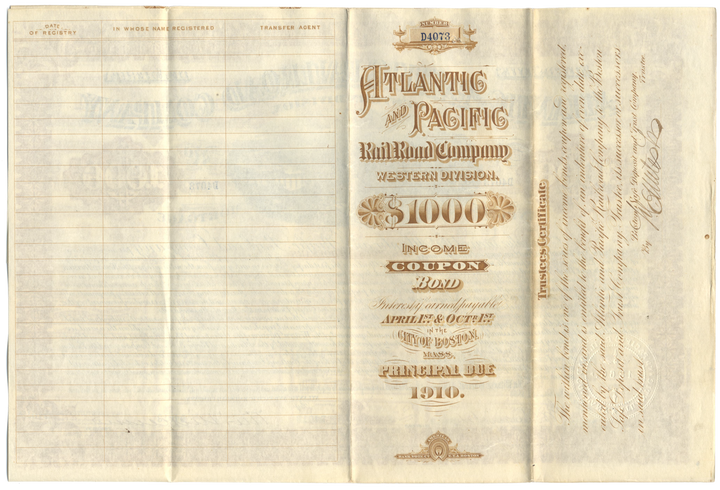 DATE
OF REGISTRY
IN WHOSE NAME REGISTERED
TRANSFER AGENT
NUMBER
D4073
ATLANTIC
AND PACIFIC
Rail Road Company
WESTERN DIVISION.
$1000
INCOME
COUPON
BOND
Interest, if earned, payable
APRIL 1ST & OCT'R 1ST
IN THE
CITY OF BOSTON,
MASS.
PRINCIPAL DUE
1910.
Trustee's Certificate
The within bond is one of the series of income bonds, coupon and registered,
mentioned in and is entitled to the benefit of an indenture of even date, ex-
ecuted by the said Atlantic and Pacific Railroad Company to the Boston
Safe Deposit and Trust Company, Trustee, its successor or successors
in said trust.
Boston Safe Deposit and Trust Company
Trustee
By